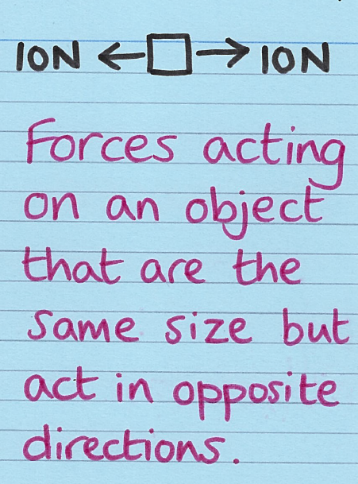 10N ← □ → 10N
Forces acting
on an object
that are the
same size but
act in opposite
directions.